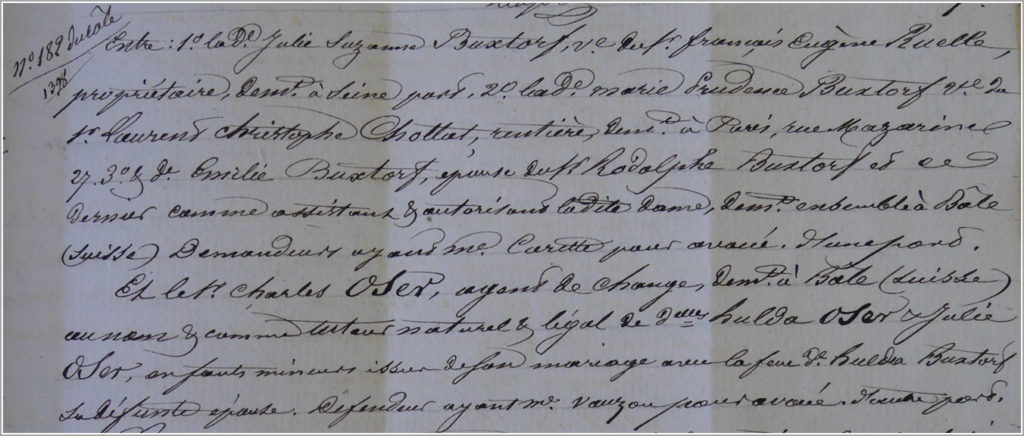 N° 188 du rôle
1398
Entre : 1° la De Julie Suzanne Buxtorf, ve du sr françois Eugène Ruelle,
propriétaire, demt à Seine port. 2° la De marie Prudence Buxtorf ve du
sr Laurent Christophe Chottet, rentière, demt à Paris, rue Mazarine
27. 3° & De Emélie Buxtorf, épouse du Sr Rodolphe Buxtorf et ce
dernier comme assistant & autorisant la dite dame, demt ensemble à Bâle
(Suisse) Demandeurs ayant me Carette pour avoué. D'une part.
Et le Sr Charles Oser, agent de change, demt à Bâle (Suisse)
au nom & comme tuteur naturel & légal de Dlles hulda Oser & Julie
Oser, enfants mineurs issus de son mariage avec la feu De hulda Buxtorf
sa défunte épouse. Défendeur ayant me vauzou pour avoué. D'autre part.